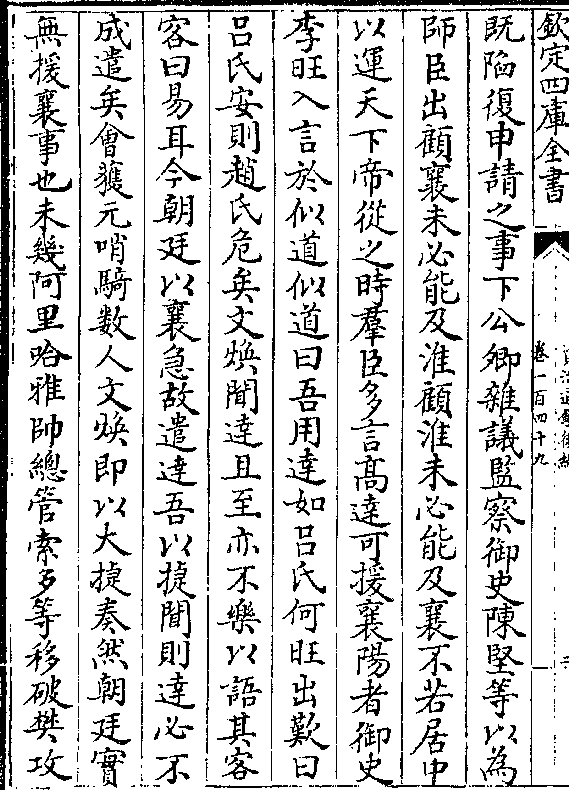 欽定四庫全書
卷一百四十九
既陷復申請之事下公卿雜議監察御史陳堅等以為
師臣出顧襄未必能及淮顧淮未必能及襄不若居中
以運天下帝從之時羣臣多言髙達可援襄陽者御史
李旺入言於似道似道曰吾用達如吕氏何旺出歎曰
吕氏安則趙氏危矣文煥聞達且至亦不樂以語其客
客曰易耳今朝廷以襄急故遣達吾以捷聞則達必不
成遣矣會獲元哨騎數人文煥即以大捷奏然朝廷實
無援襄事也未幾阿里哈雅帥總管索多等移破樊攻